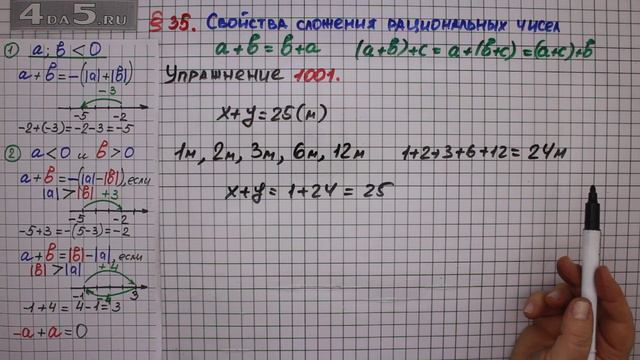 4DA5.RU
§ 35. Свойства сложения рациональных чисел
a+b=b+a (a+b)+c=a+(b+c)=(a+c)+b
Упражнение 1001.
x+y=25(м)
1м, 2м, 3м, 6м, 12м 1+2+3+6+12=24м
x+y=1+24=25
1) a;b<0
a+b=-(|a|+|b|)
-3
-5 -2
-2+(-3)=-2-3=-5
2) a<0 и b>0
a+b=-(|a|-|b|),если
|a|>|b| +3
-5 -2
-5+3=-(5-3)=-2
a+b=|b|-|a|,если
|b|>|a| +4
-1 4 3
-1+4=4-1=3
-a+a=0